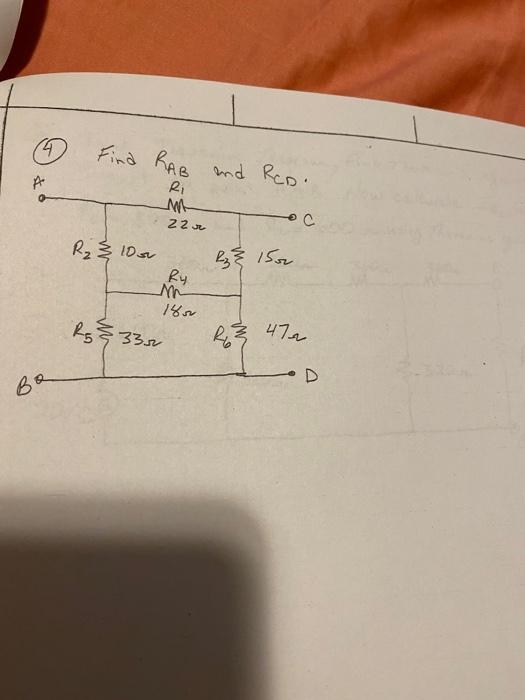 ④ Find RAB and RCD.
A
R1
22Ω
C
R2 10Ω
R3 15Ω
R4
18Ω
R5 33Ω
R6 47Ω
B
D